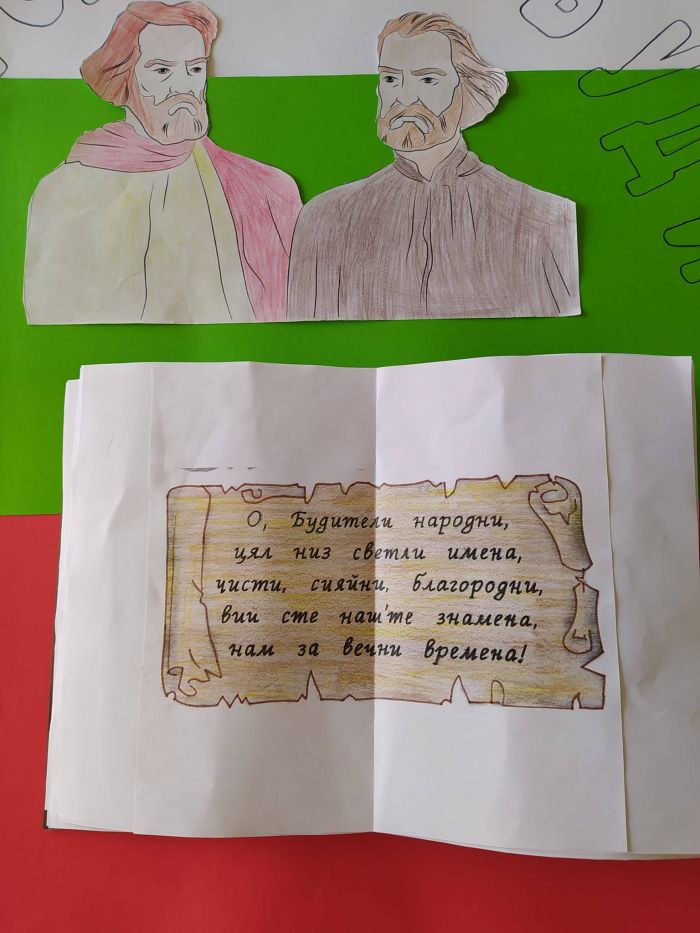 О, Будители народни,
цял низ светли имена,
чисти, сияйни, благородни,
вий сте наш'те знамена,
нам за вечни времена!